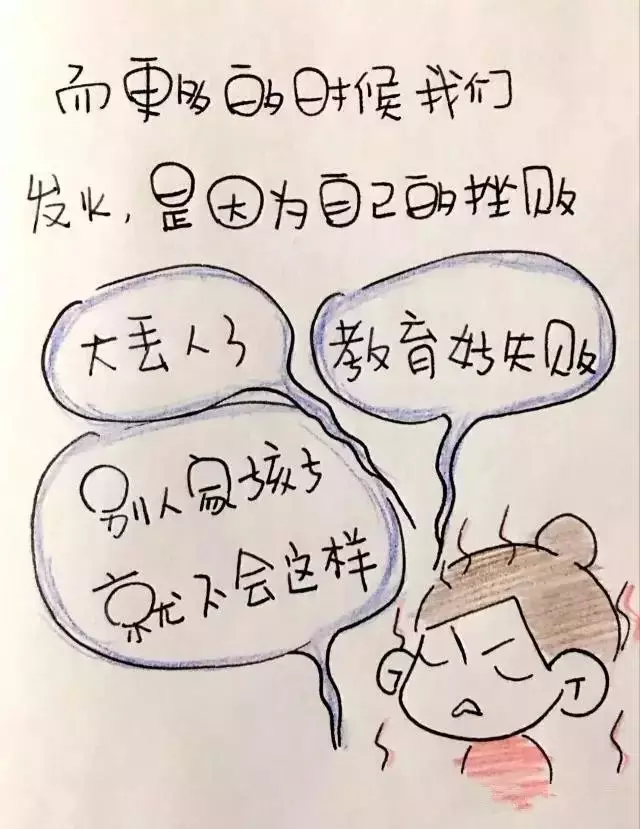 而更多的时候我们
发火,是因为自己的挫败
大丢人了
教育好失败
别人家孩子
就不会这样